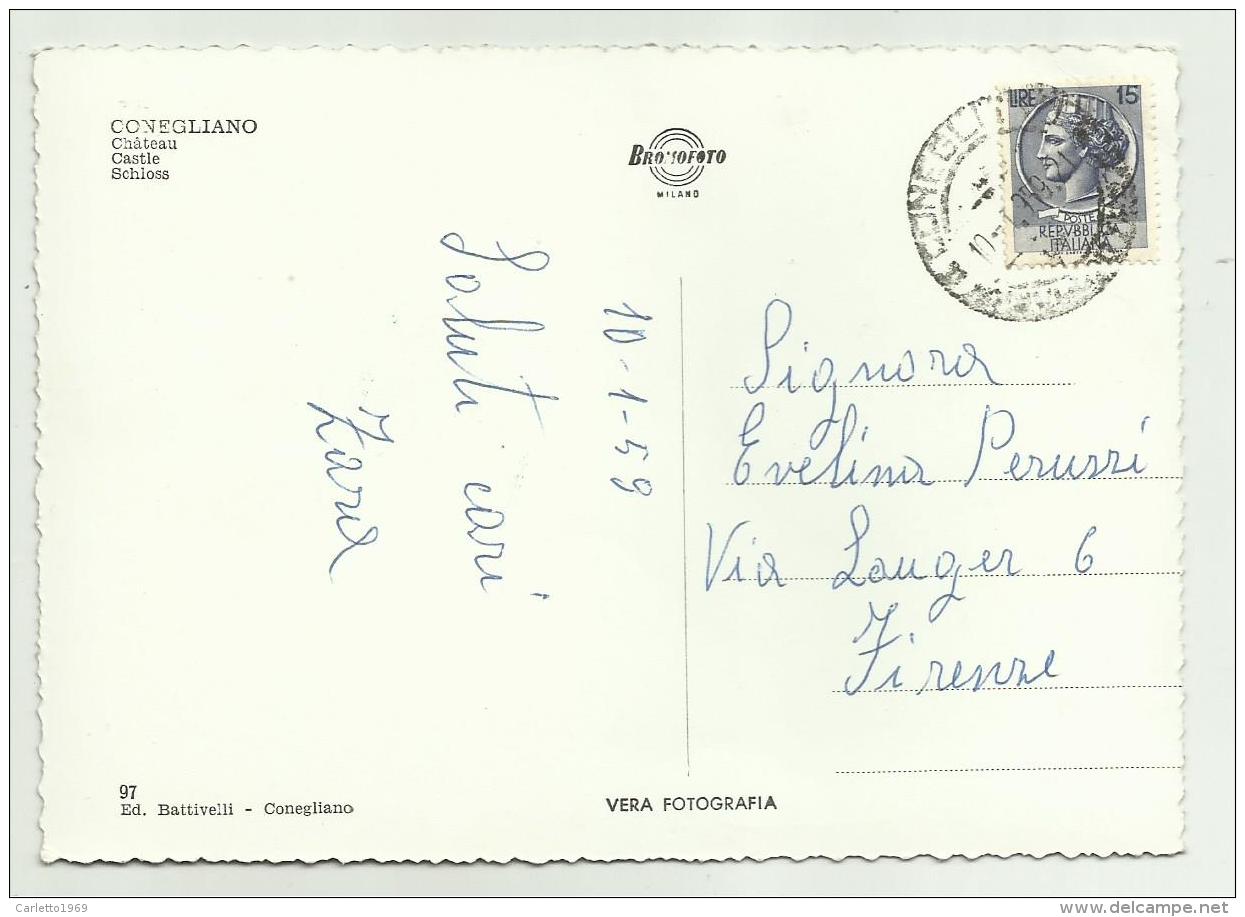 CONEGLIANO
Château
Castle
Schloss
BROMOFOTO
MILANO
LIRE 15
POSTE
REPVBBLICA
ITALIANA
10-1-59
Saluti cari
Zara
Signora
Evelina Peruzzi
Via Lauger 6
Firenze
97
Ed. Battivelli - Conegliano
VERA FOTOGRAFIA
Carletto1969
www.delcampe.net